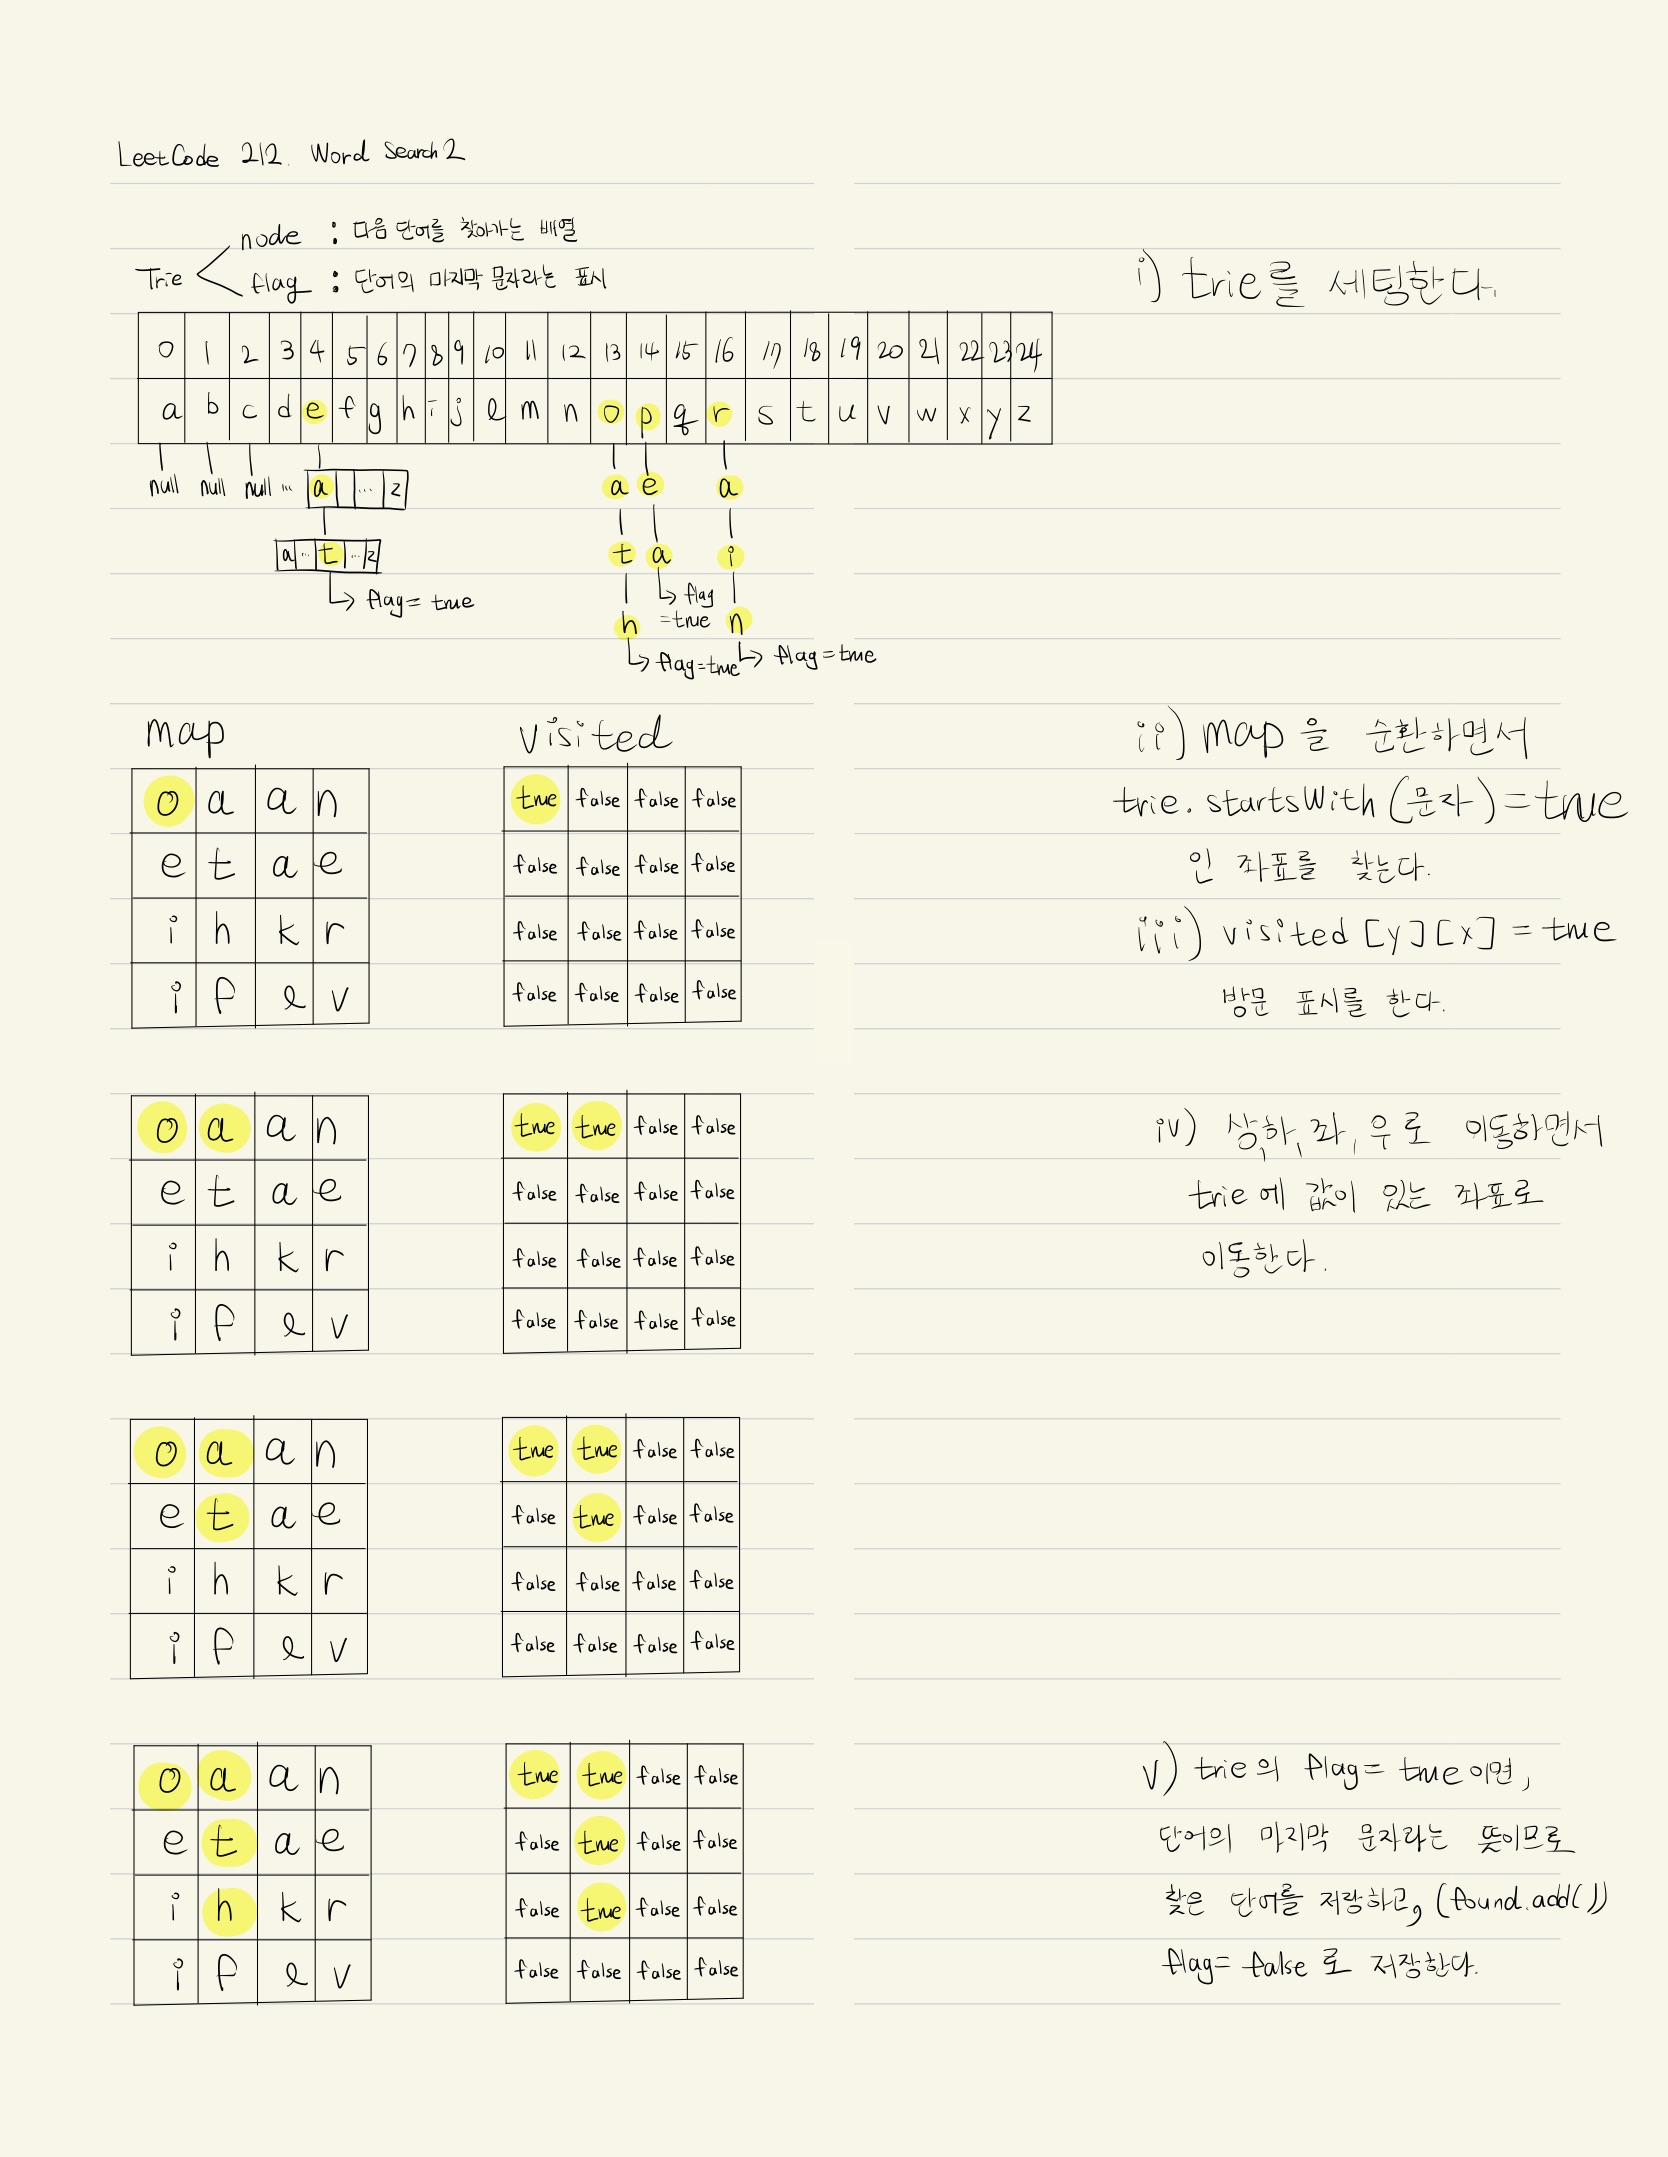 LeetCode 212. Word Search 2
Trie
node : 다음 단어를 찾아가는 배열
flag : 단어의 마지막 문자라는 표시
i) trie를 세팅한다.
0 1 2 3 4 5 6 7 8 9 10 11 12 13 14 15 16 17 18 19 20 21 22 23 24
a b c d e f g h i j l m n o p q r s t u v w x y z
null null null ... a ... z a e a
a ... t ... z t a i
flag = true h flag = true n
flag = true flag = true
map visited
o a a n true false false false
e t a e false false false false
i h k r false false false false
i f l v false false false false
ii) map 을 순환하면서
trie.startsWith(문자) = true
인 좌표를 찾는다.
iii) visited [y][x] = true
방문 표시를 한다.
o a a n true true false false
e t a e false false false false
i h k r false false false false
i f l v false false false false
iv) 상, 하, 좌, 우 로 이동하면서
trie 에 값이 있는 좌표로
이동한다.
o a a n true true false false
e t a e false true false false
i h k r false false false false
i f l v false false false false
o a a n true true false false
e t a e false true false false
i h k r false true false false
i f l v false false false false
v) trie의 flag = true 이면,
단어의 마지막 문자라는 뜻이므로
찾은 단어를 저장하고, (found.add())
flag = false 로 저장한다.